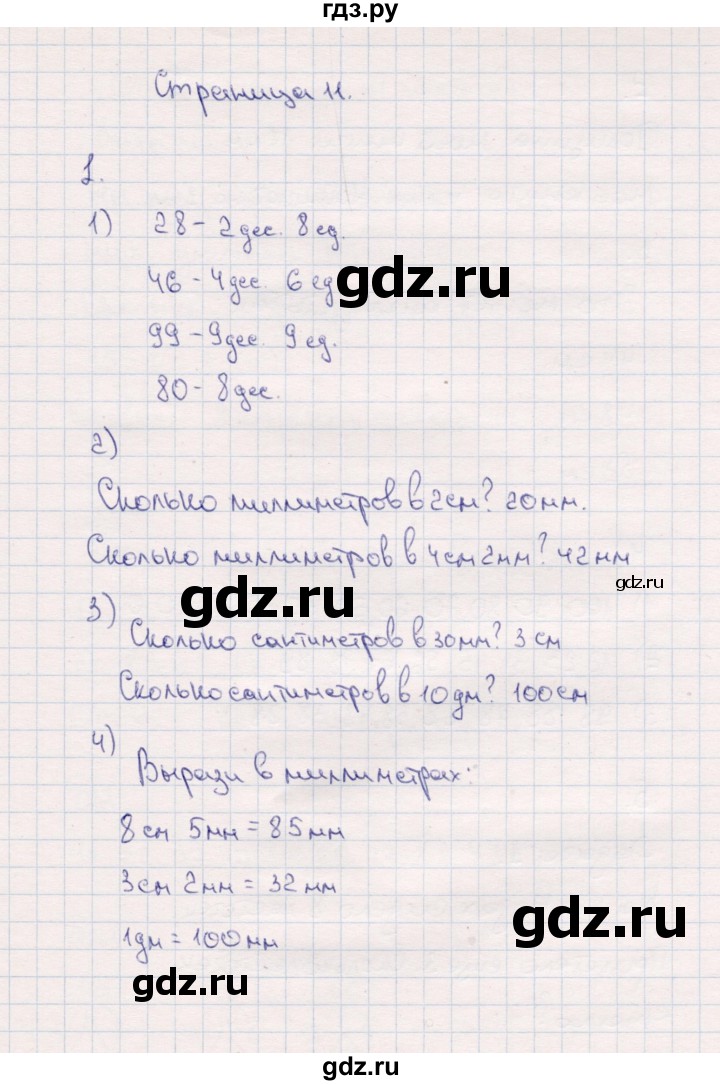 гдз.ру
Страница 11.
1.
1) 28 - 2 дес. 8 ед.
46 - 4 дес. 6 ед
gdz.ru
99 - 9 дес. 9 ед.
80 - 8 дес.
2)
Сколько миллиметров в 2 см? 20 мм.
Сколько миллиметров в 4 см 2 мм? 42 мм
gdz.ru
gdz.ru
3) Сколько сантиметров в 30 мм? 3 см
Сколько сантиметров в 10 дм? 100 см
4) Вырази в миллиметрах:
8 см 5 мм = 85 мм
3 см 2 мм = 32 мм
gdz.ru
1 дм = 100 мм
gdz.ru
gdz.ru